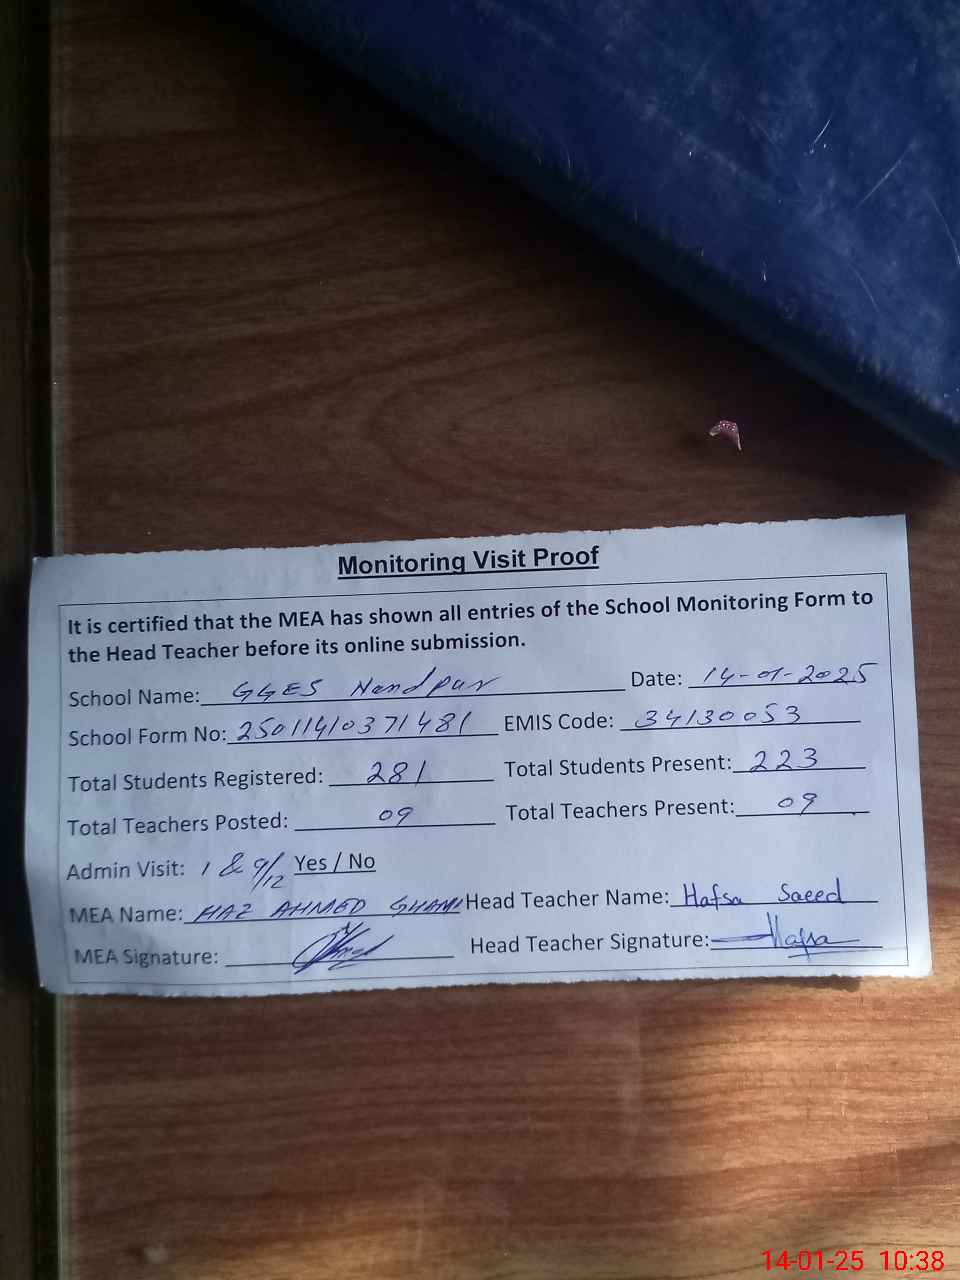 Monitoring Visit Proof
It is certified that the MEA has shown all entries of the School Monitoring Form to
the Head Teacher before its online submission.
School Name: GGES Nandpur Date: 14-01-2025
School Form No: 25011410371481 EMIS Code: 34130053
Total Students Registered: 281 Total Students Present: 223
Total Teachers Posted: 09 Total Teachers Present: 09
Admin Visit: 1 & 9/12 Yes / No
MEA Name: AHMED Head Teacher Name: Hafsa Saeed
MEA Signature: Head Teacher Signature: Hafsa
14-01-25 10:38